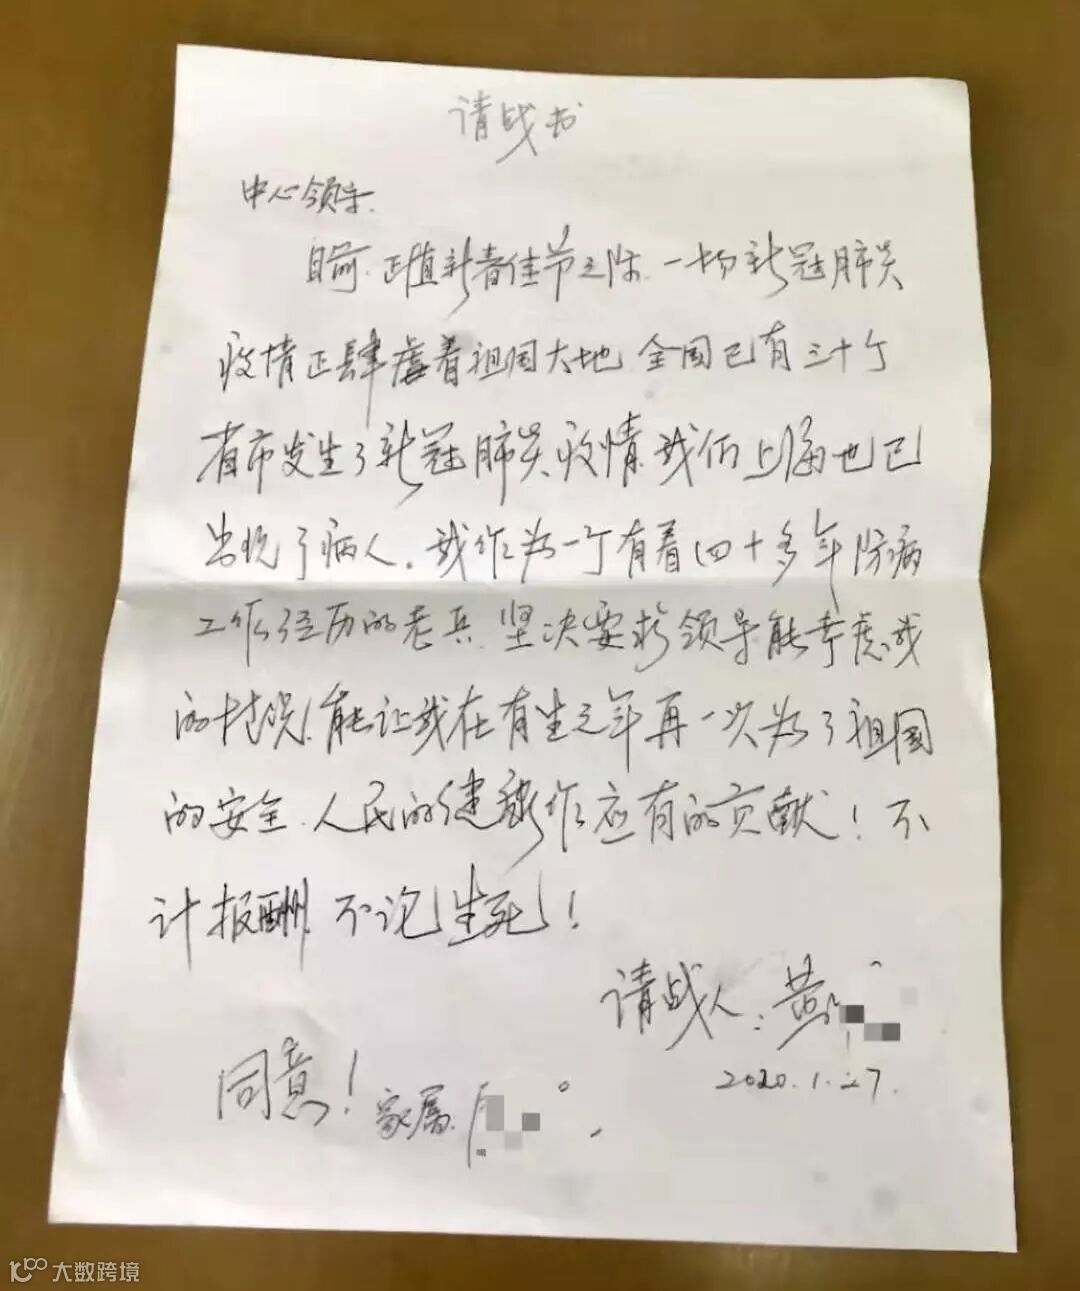 请战书
中心领导.
目前.正值新春佳节之际.一场新冠肺炎
疫情正肆虐着祖国大地.全国已有三十个
省市发生了新冠肺炎疫情.我们上海也已
出现了病人.我作为一个有着四十多年防病
工作经历的老兵.坚决要求领导能考虑我
的情况!能让我在有生之年再一次为了祖国
的安全.人民的健康作应有的贡献!不
计报酬.不论生死!
请战人:黄
2020.1.27.
同意!家属.
大数跨境